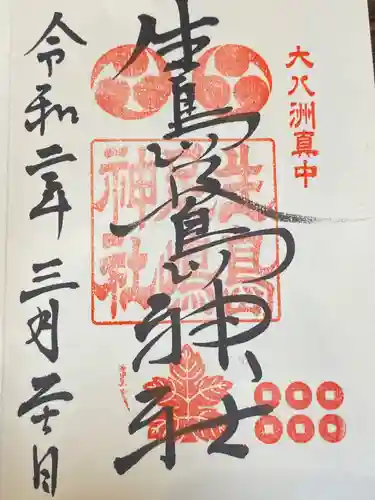 大八洲真中
生島足島神社
生島足島神社
令和二年三月二十日